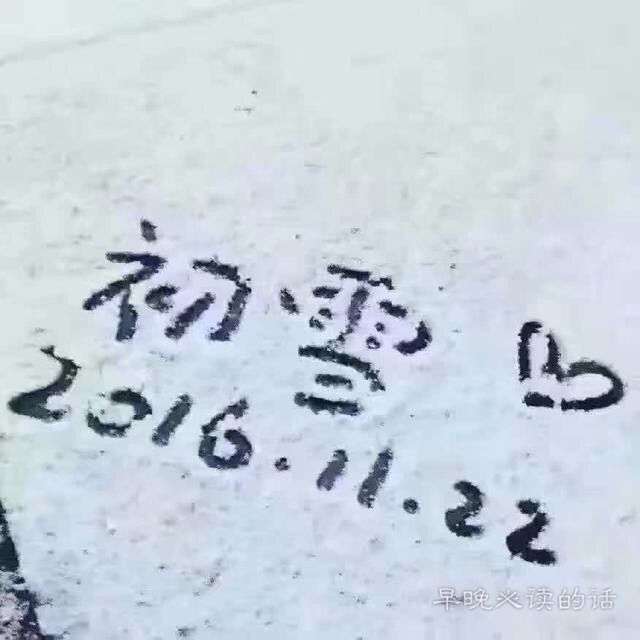 初雪
2016.11.22
早晚必读的话